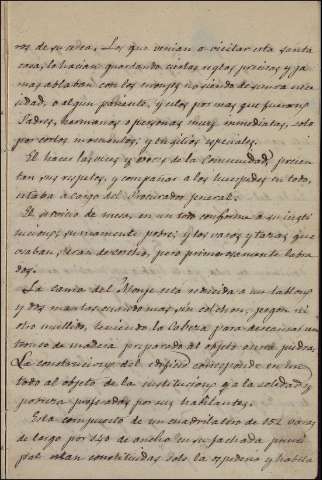 ros de su celda. Los que venian a visitar esta santa
casa, lo hacian guardando ciertas reglas precisas y ja
mas ablaban con los monjes no siendo de suma nece
sidad, o algun pariente, y estos por mas que fueran
Padres, hermanos o personas muy inmediatas, solo
por cortos momentos, y en sitios especiales.
El hacer las veces y voces de la Comunidad, presen
tar sus respetos, y compañar a los huespedes en todo,
estaba a cargo del Procurador general.
El servicio de mesa, en un todo conforme a su insti
tuciones sumamente pobre; y los vasos y tazas que
usaban, eran de corcho, pero primorosamente labra
dos.
La cama del Monje esta reducida a un tablon
y dos mantas encima mas sin colchon, jergon ni
otro mullido, teniendo la cabeza para descansar un
trozo de madera preparado al objeto o una piedra.
La construccion del edificio corresponde en un
todo al objeto de la institucion y a la soledad y
pobreza profesadas por sus habitantes.
Esta compuesto de un cuadrilatero de 152 varas
de largo por 140 de ancho en su fachada princi
pal estan constituidas solo la ospederia y habita